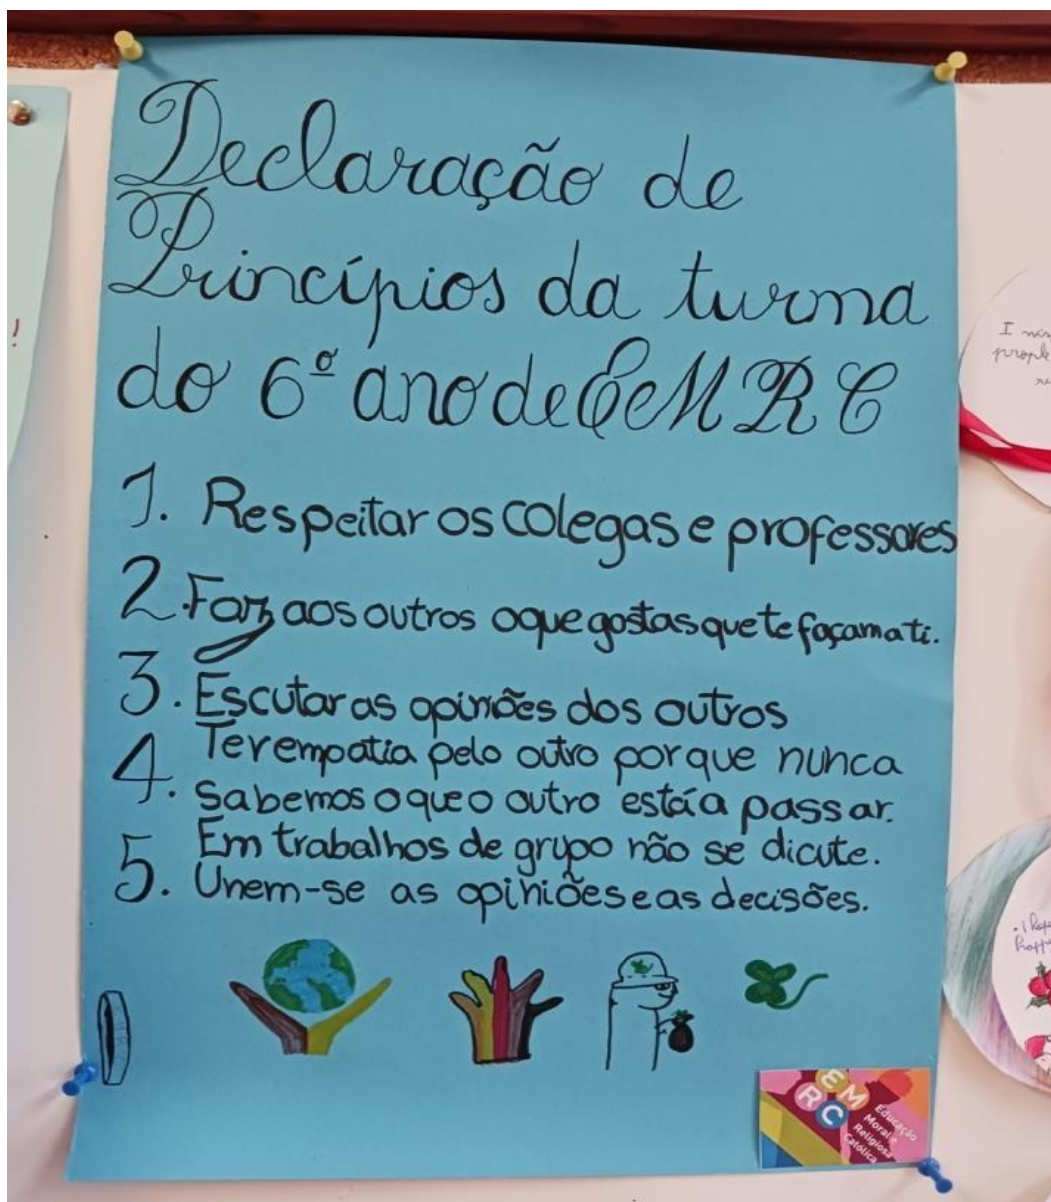 Declaração de
Princípios da turma
do 6º ano de EMRC
1. Respeitar os colegas e professores
2. Faz aos outros o que gostas que te façam a ti.
3. Escutar as opiniões dos outros
4. Ter empatia pelo outro porque nunca
sabemos o que o outro está a passar.
5. Em trabalhos de grupo não se dicute.
Unem-se as opiniões e as decisões.
EMRC
Educação
Moral e
Religiosa
Católica
!
I
people